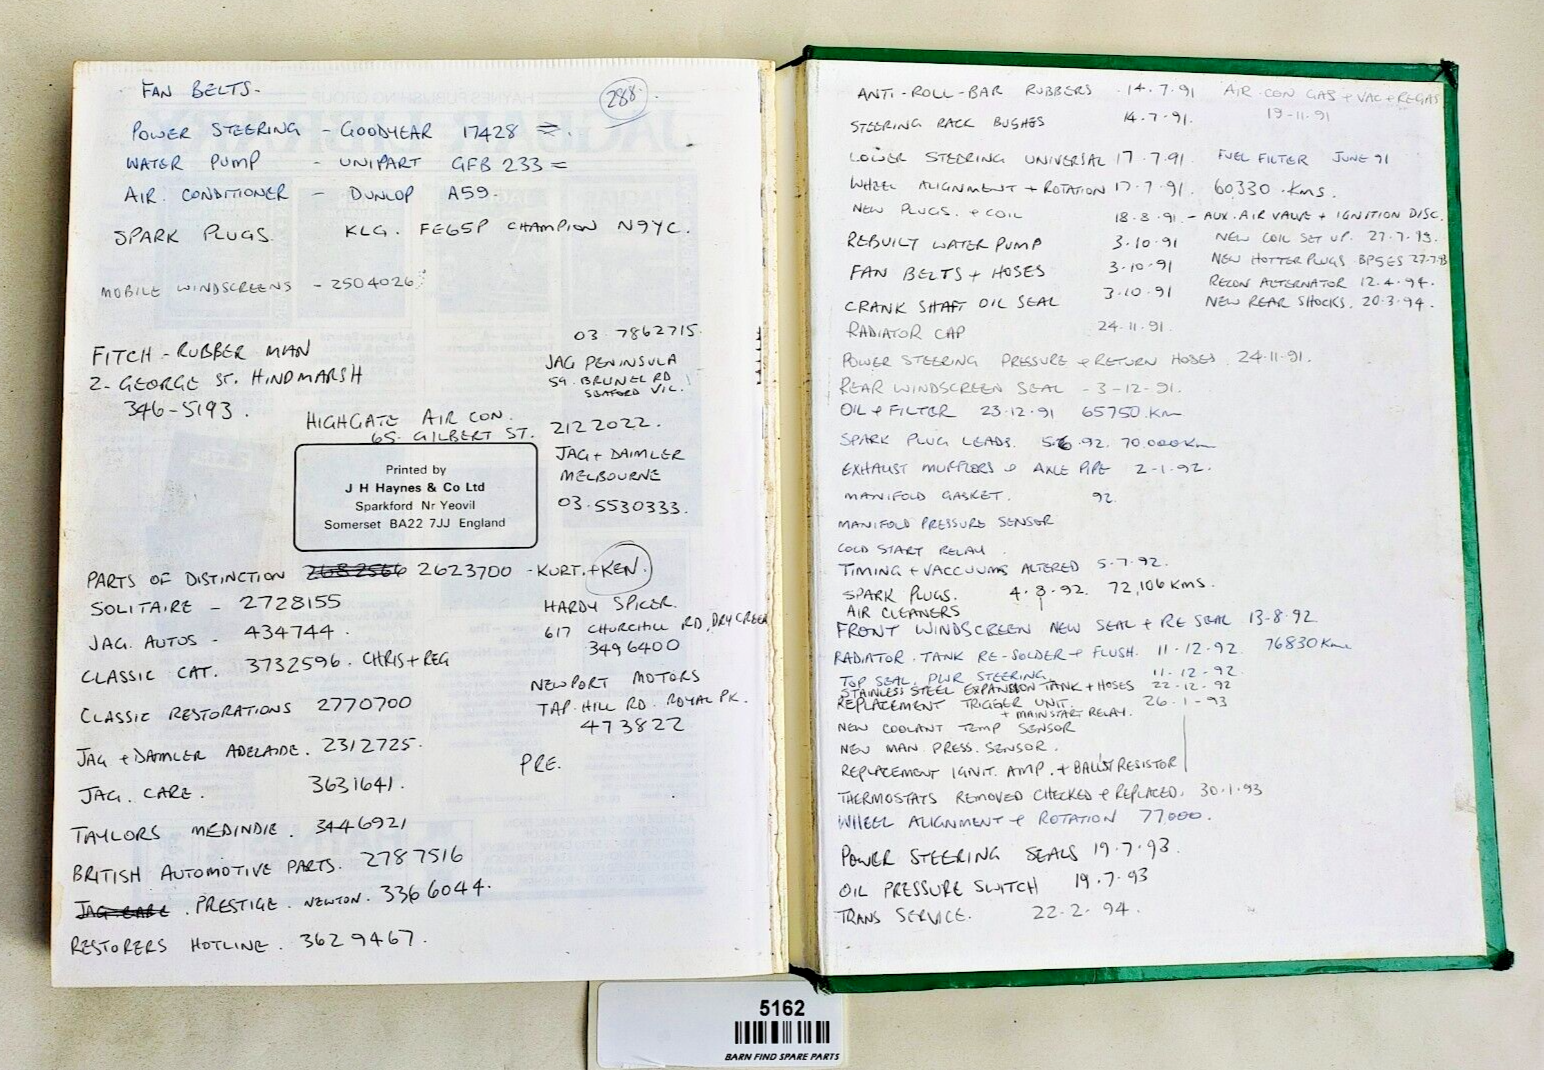 FAN BELTS-
288
POWER STEERING - GOODYEAR 17428
WATER PUMP - UNIPART GFB 233
AIR. CONDITIONER - DUNLOP A59.
SPARK PLUGS. KLG. FE65P CHAMPION N9YC.
MOBILE WINDSCREENS - 2504026
FITCH - RUBBER MAN
2. GEORGE ST. HINDMARSH
346-5193.
03. 7862715.
JAG PENINSULA
59. BRUNEL RD
SEAFORD VIC.
HIGHGATE AIR CON.
65. GILBERT ST.
2122022.
JAG + DAIMLER
MELBOURNE
03.5530333.
Printed by
J H Haynes & Co Ltd
Sparkford Nr Yeovil
Somerset BA22 7JJ England
PARTS OF DISTINCTION 2682566 2623700 - KURT. + KEN.
SOLITAIRE - 2728155
JAG. AUTOS - 434744.
CLASSIC CAT. 3732596. CHRIS + REG
CLASSIC RESTORATIONS 2770700
JAG + DAIMLER ADELAIDE. 2312725.
JAG. CARE. 3631641.
TAYLORS MEDINDIE. 3446921
BRITISH AUTOMOTIVE PARTS. 2787516
JAG CARE. PRESTIGE. NEWTON. 3366044.
RESTORERS HOTLINE. 3629467.
HARDY SPICER.
617 CHURCHILL RD, DRY CREEK
3496400
NEWPORT MOTORS
TAP. HILL RD. ROYAL PK.
473822
PRE.
ANTI-ROLL-BAR RUBBERS 14.7.91 AIR CON GAS + VAC + REGAS
19-11-91
STEERING RACK BUSHES 14.7.91.
LOWER STEERING UNIVERSAL 17.7.91. FUEL FILTER JUNE 91
WHEEL ALIGNMENT + ROTATION 17.7.91. 60330 KMS.
NEW PLUGS. + COIL 18.8.91. - AUX. AIR VALVE + IGNITION DISC.
REBUILT WATER PUMP 3.10.91 NEW COIL SET UP. 27.7.93.
FAN BELTS + HOSES 3.10.91 NEW HOTTER PLUGS BP5ES 27.7.93
CRANK SHAFT OIL SEAL 3.10.91 RECON ALTERNATOR 12.4.94.
NEW REAR SHOCKS. 20.3.94.
RADIATOR CAP 24.11.91.
POWER STEERING PRESSURE + RETURN HOSES. 24.11.91.
REAR WINDSCREEN SEAL - 3-12-91.
OIL + FILTER 23.12.91 65750 Km
SPARK PLUG LEADS. 5.6.92. 70,000 Km
EXHAUST MUFFLORS + AXLE PIPE 2-1-92.
MANIFOLD GASKET. 92.
MANIFOLD PRESSURE SENSOR
COLD START RELAY.
TIMING + VACCUUMS ALTERED 5.7.92.
SPARK PLUGS. 4.8.92. 72,106 KMS.
AIR CLEANERS
FRONT WINDSCREEN NEW SEAL + RE SEAL 13-8-92
RADIATOR. TANK RE-SOLDER + FLUSH. 11-12-92. 76830 Km
TOP SEAL. PWR STEERING. 11-12-92.
STAINLESS STEEL EXPANSION TANK + HOSES 22-12-92
REPLACEMENT TRIGGER UNIT. 26.1-93
+ MAINSTART RELAY.
NEW COOLANT TEMP SENSOR
NEW MAN. PRESS. SENSOR.
REPLACEMENT IGNIT. AMP. + BALLST RESISTOR
THERMOSTATS REMOVED CHECKED + REPLACED. 30.1.93
WHEEL ALIGNMENT + ROTATION 77,000.
POWER STEERING SEALS 19.7.93.
OIL PRESSURE SWITCH 19.7.93
TRANS SERVICE. 22.2.94.
5162
BARN FIND SPARE PARTS